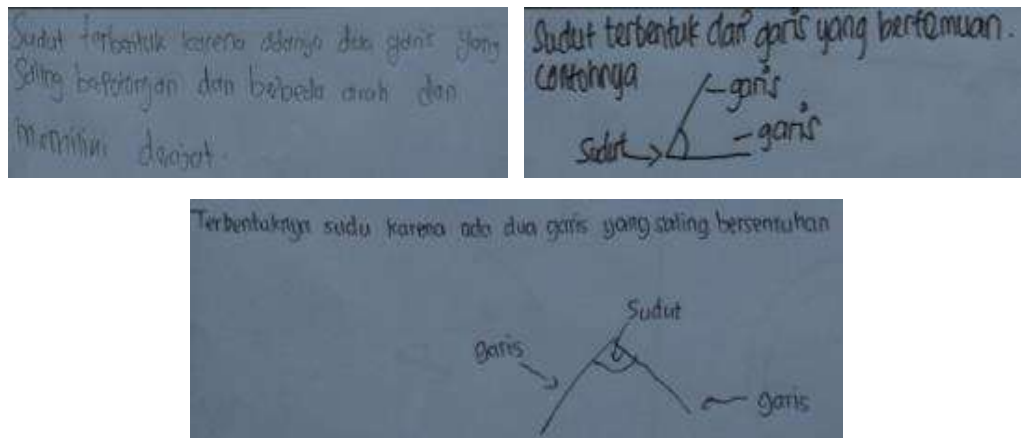 Sudut terbentuk karena adanya dua garis yang
saling berpotongan dan berbeda arah dan
memiliki derajat.
Sudut terbentuk dari garis yang bertemuan.
contohnya
garis
garis
Sudut
Terbentuknya sudu karena ada dua garis yang saling bersentuhan
Sudut
garis
garis